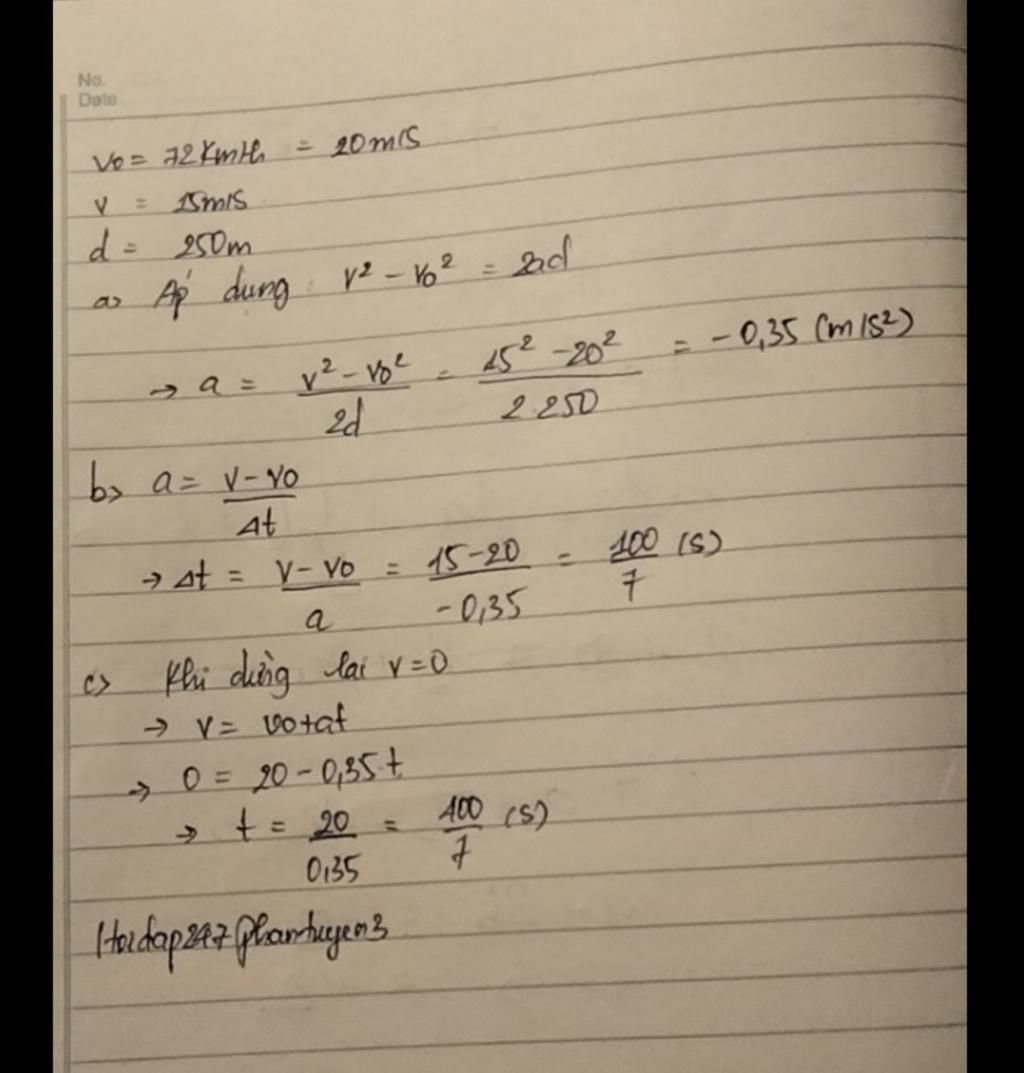 No.
Date
v₀ = 72 Km/h = 20 m/s
v = 15 m/s
d = 250m
a> Áp dung: v² - v₀² = 2ad
→ a = (v² - v₀²)/(2d) = (15² - 20²)/(2.250) = -0,35 (m/s²)
b> a = (v - v₀)/Δt
→ Δt = (v - v₀)/a = (15-20)/(-0,35) = 100/7 (s)
c> Khi dừng lại v=0
→ v = v₀+at
→ 0 = 20 - 0,35t
→ t = 20/0,35 = 400/7 (s)
Hoidap247 Phamtuyen3